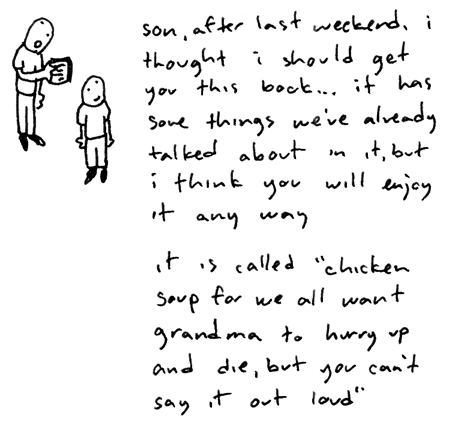 son, after last weekend, i
thought i should get
you this book... it has
some things we've already
talked about in it, but
i think you will enjoy
it any way
it is called "chicken
soup for we all want
grandma to hurry up
and die, but you can't
say it out loud"